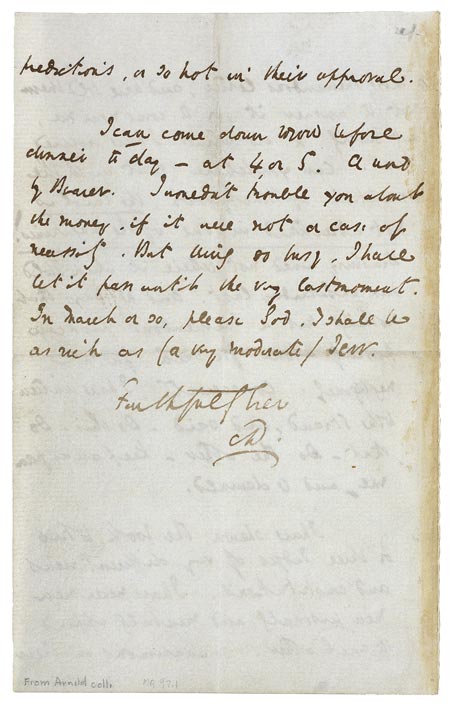 predictions, or so hot in their approval.
I can come down to you before
dinner to day – at 4 or 5. A word
by Bearer. I wouldn't trouble you about
the money, if it were not a case of
necessity. But being so busy, I have
let it pass until the very last moment.
In March or so, please God, I shall be
as rich as (a very moderate) Jew.
Faithfully Ever
CD.
From Arnold coll:
MA 97.1